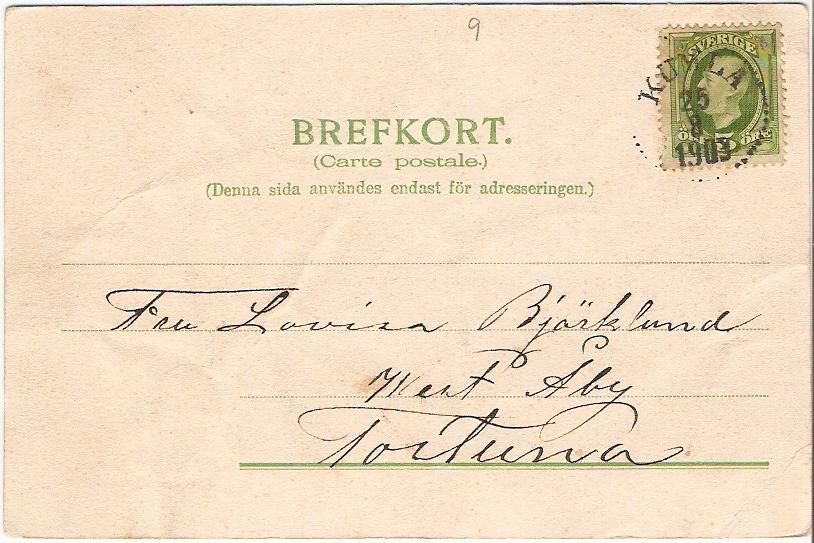 9
SVERIGE
KUMLA
25
8
1903
5 ÖRE
BREFKORT.
(Carte postale.)
(Denna sida användes endast för adresseringen.)
Fru Lovisa Björklund
West Åby
Tortuna